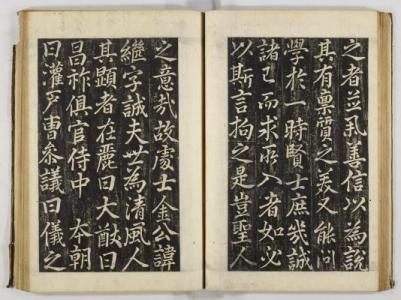 之者並風善信以為說
其有稟質之美又能問
學於一時賢士庶幾誠
諸己而求所入者如必
以斯言拘之是豈聖人
之意哉故處士金公諱
繼字誠夫世為清風人
其顯者在麗曰大猷曰
昌祚俱官侍中 本朝
曰灌戶曹參議曰儀之